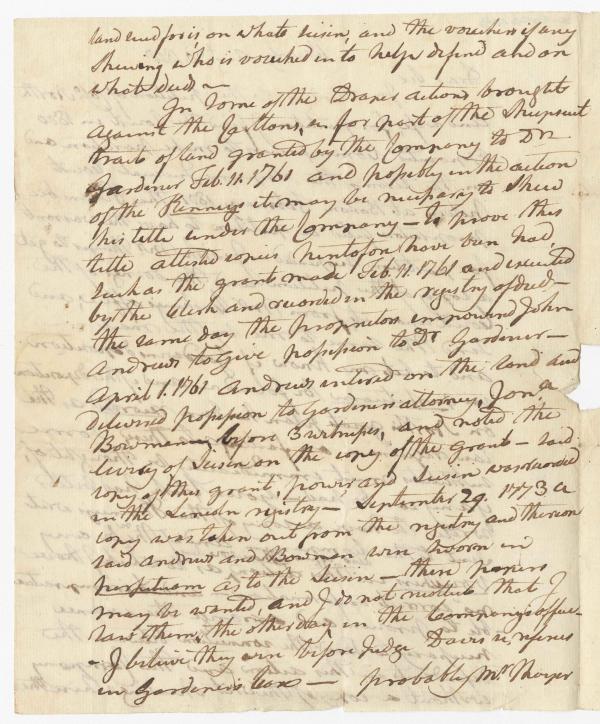 land and for is, on whats seisin, and the vouchers if any
shewing who is vouched in to help defend and on
what deed —
In some of the Draper actions brought
against the for part of the Sheepscut
tract of land granted by the Company to Dr
Gardiner Feb. 11. 1761 and possibly in the action
of the Kenneys it may be necessary to shew
this title under the Company — To prove this
title attested copies heretofore have been had,
such as the grant made Feb. 11. 1761 and executed
by the Clerk and recorded in the registry of deed —
the same day the proprietors impowred John
Andrews to give possession to Dr Gardiner —
April 1. 1761 Andrews entered on the land and
delivered possession to Gardiners attorney, Jona
Bowman — before 3 witnesses, and noted the
livery of Seisin on the copy of the grant — said
copy of this grant, power, and Seisin was recorded
in the Lincoln registry — September 29. 1773 a
copy was taken out from the registry and thereon
said Andrews and Bowman were sworn in
perpetuam as to the Seisin — these papers
may be wanted, and I do not recollect that I
saw them, the other day, in the Companys office —
— I believe they were before Judge Davis &c, referees
in Gardiners case — probably Mr Thayer